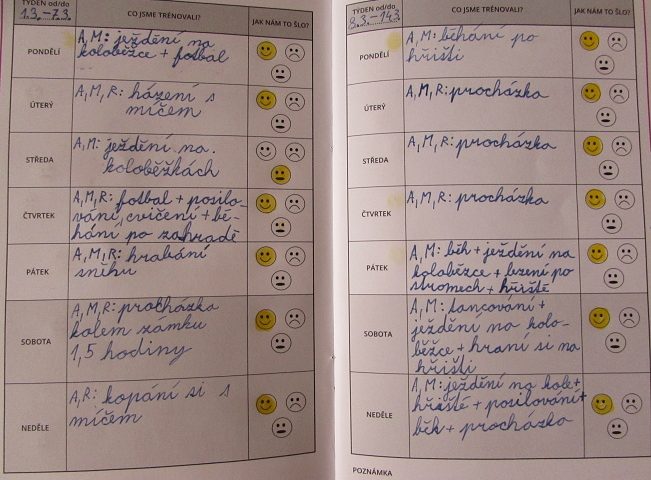 TÝDEN od/do
1.3.-7.3.
CO JSME TRÉNOVALI?
JAK NÁM TO ŠLO?
PONDĚLÍ
A, M: ježdění na
koloběžce + fotbal
ÚTERÝ
A, M, R: házení s
míčem
STŘEDA
A, M: ježdění na
koloběžkách
ČTVRTEK
A, M, R: fotbal + posilo-
vání, cvičení + bě-
hání po zahradě
PÁTEK
A, M, R: hrabání
sněhu
SOBOTA
A, M, R: procházka
kolem zámku
1,5 hodiny
NEDĚLE
A, R: kopání si s
míčem
TÝDEN od/do
8.3.-14.3.
CO JSME TRÉNOVALI?
JAK NÁM TO ŠLO?
PONDĚLÍ
A, M: běhání po
hřišti
ÚTERÝ
A, M, R: procházka
STŘEDA
A, M, R: procházka
ČTVRTEK
A, M, R: procházka
PÁTEK
A, M: běh + ježdění na
koloběžce + lezení po
stromech + hřiště
SOBOTA
A, M: tancování +
ježdění na kolo-
běžce + hraní si na
hřišti
NEDĚLE
A, M: ježdění na kole +
hřiště + posilování +
běh + procházka
POZNÁMKA